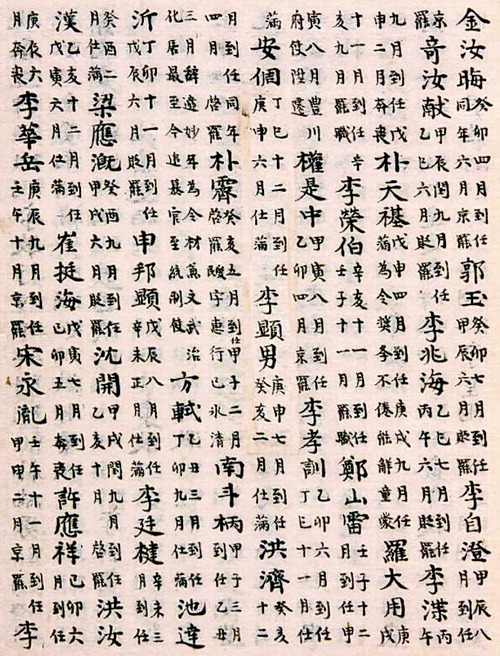 金汝晦 癸卯四月到任 同年六月京罷 郭玉 癸卯七月到任 甲辰六月貶罷 李自澄 甲辰八
奇汝献 甲辰閏九月到任 乙巳六月貶罷 李兆海 乙巳七月到任 丙午六月貶罷 李渫 丙
九月到任戊 申二月奔喪 朴天祺 戊申四月到任庚戌 蒲為令奬務不倦能解童蒙 羅大用 庚戌
十一月到任辛 亥九月罷職 李榮伯 辛亥十一月到任 壬子十一月罷職 鄭山雷 壬子十二 月到任甲
寅八月豊川 府使陞遷 權是中 甲寅八月到任 乙卯四月京罷 李孝訓 乙卯六月到任 丁巳十一月仕
蒲 安倜 丁巳十二月到任 庚申六月仕蒲 李顕男 庚申七月到任 癸亥二月仕蒲 洪濟 癸亥 十二
月到任同年 四月啓罷 朴霽 癸亥五月到仕甲子二月 啓罷 字惠行己氷清 南斗柄 甲子三月 到任乙丑
三月辞遠妙年為令材兼文武治 化居最至今追慕官至統制使 方軾 乙丑三月到任 丁卯九月仕蒲 池達
沂 丁卯十一月到任 六月貶罷 申邦顕 戊辰八月到任 辛未正月仕蒲 李廷楗 辛未三 月到任
癸酉二 月仕蒲 梁應漑 癸酉九月到任 甲戌六月貶罷 沈開 甲戌閏九月到任 乙亥十月啓罷 洪汝
漢 乙亥十二月到任 戊寅六月仕蒲 崔挺海 戊寅七月到任 己卯五月奔喪 許應祥 己卯六 月到任
庚辰六 月奔喪 李華岳 庚辰九月到任 壬午十月京罷 宋永胤 壬午十一月到任 甲申二月京罷 李